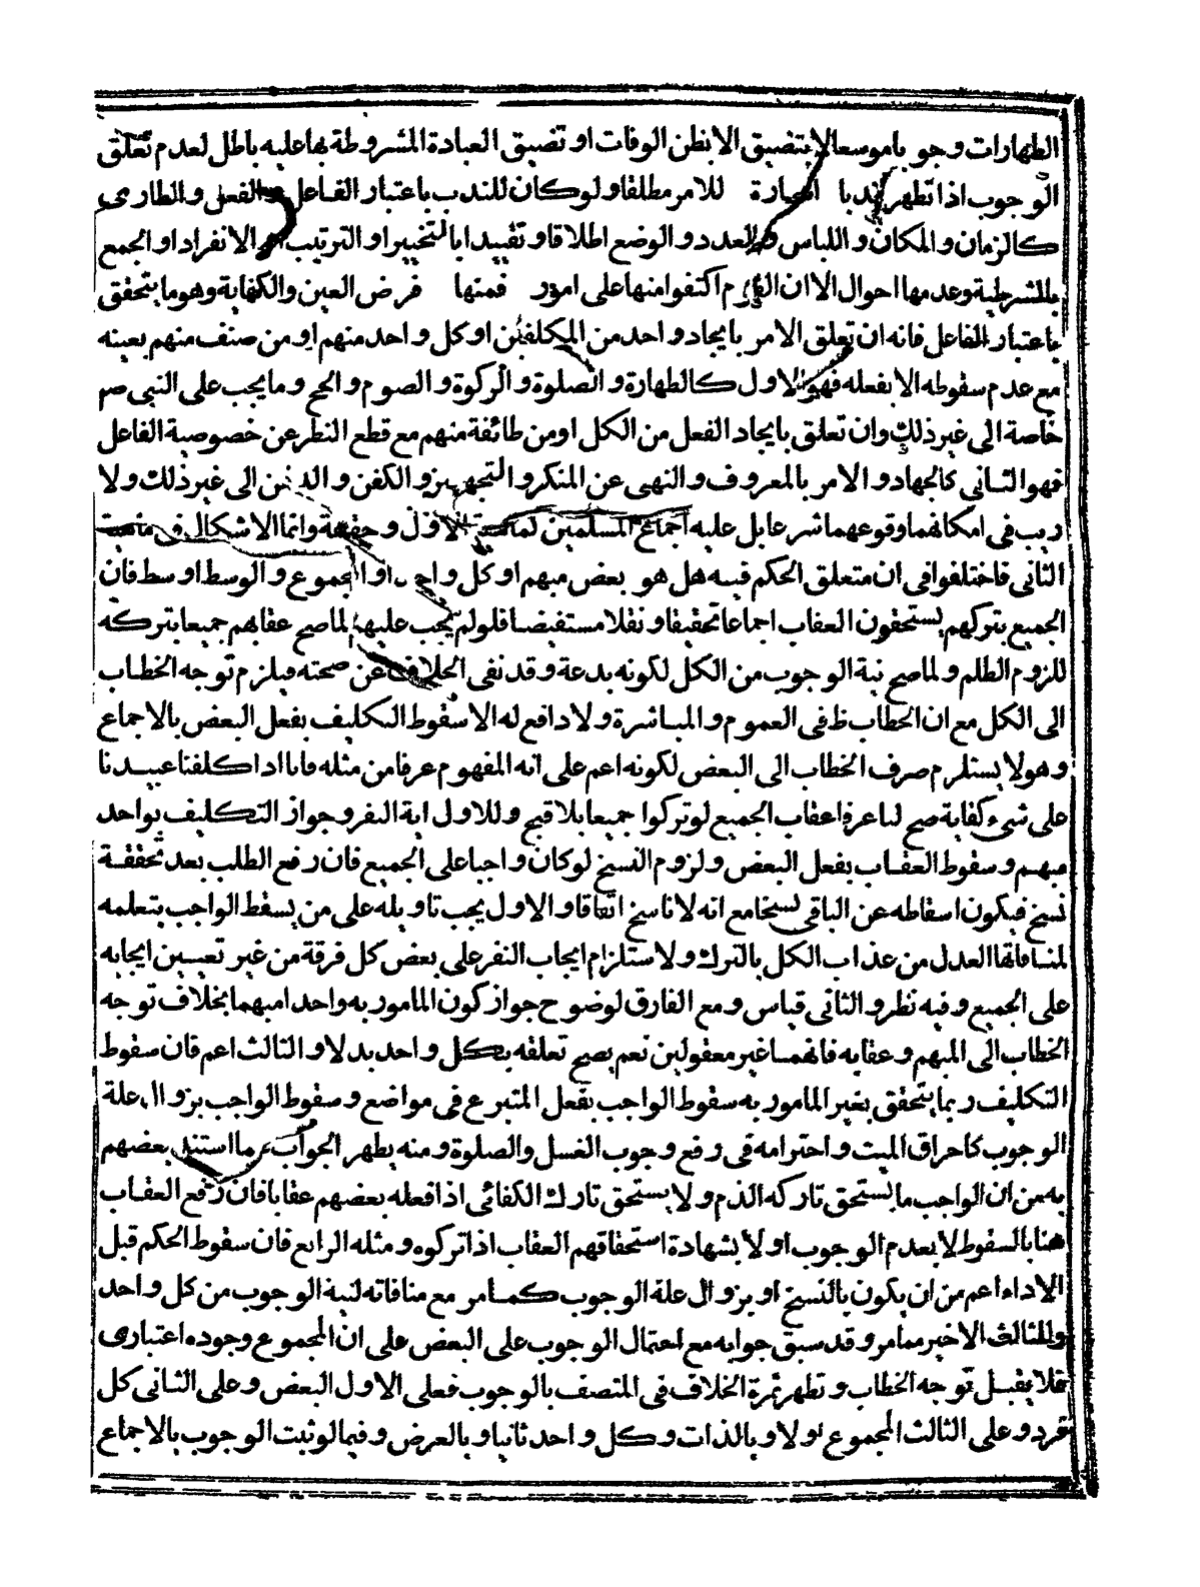 الطهارات وجوبا موسعا لا يتضيق الا بظن الوفات او تضيق العبادة المشروطة بها عليه باطل لعدم تعلق
الوجوب اذا تطهر ندبا للامر مطلقا ولو كان للندب باعتبار الفاعل والفعل والطارى
كالزمان والمكان واللباس والعدد والوضع اطلاقا وتقييدا بالتخيير او الترتيب او الانفراد او الجمع
بالشرطية وعدمها احوال الا ان القوم اكتفوا منها على امور فمنها فرض العين والكفاية وهو ما يتحقق
باعتبار الفاعل فانه ان تعلق الامر بايجاد واحد من المكلفين او كل واحد منهم او من صنف منهم بعينه
مع عدم سقوطه الا بفعله فهو الاول كالطهارة والصلوة والزكوة والصوم والحج وما يجب على النبى صم
خاصة الى غير ذلك وان تعلق بايجاد الفعل من الكل او من طائفة منهم مع قطع النظر عن خصوصية الفاعل
فهو الثانى كالجهاد والامر بالمعروف والنهى عن المنكر والتجهيز والكفن والدفن الى غير ذلك ولا
ريب فى امكانهما وقوعهما شرعا بل عليه اجماع المسلمين الاول وحقيقة وانما الاشكال فى مهية
الثانى فاختلفوا فى ان متعلق الحكم فيه هل هو بعض مبهم او كل واحد او المجموع والوسط اوسط فان
الجميع بتركهم يستحقون العقاب اجماعا تحقيقا ونقلا مستفيضا فلو لم يجب عليهم لما صح عقابهم جميعا بتركه
للزوم الظلم ولما صح نية الوجوب من الكل لكونه بدعة وقد نفى الخلاف عن صحته فيلزم توجه الخطاب
الى الكل مع ان الخطاب ظ فى العموم والمباشرة ولا دافع له الا سقوط التكليف بفعل البعض بالاجماع
وهو لا يستلزم صرف الخطاب الى البعض لكونه اعم على انه المفهوم عرفا من مثله فانا اذا كلفنا عبيدنا
على شىء كفاية صح لنا عرفا عقاب الجميع لو تركوا جميعا بلا قبح وللاول اية النفر وجواز التكليف بواحد
مبهم وسقوط العقاب بفعل البعض ولزوم النسخ لو كان واجبا على الجميع فان رفع الطلب بعد تحققة
نسخ فيكون اسقاطه عن الباقى نسخا مع انه لا ناسخ اتفاقا والاول يجب تاويله على من يسقط الواجب بتعلمه
لمنافاتها العدل من عذاب الكل بالترك ولاستلزام ايجاب النفر على بعض كل فرقة من غير تعيين ايجابه
على الجميع وفيه نظر والثانى قياس ومع الفارق لوضوح جواز كون المامور به واحدا مبهما بخلاف توجه
الخطاب الى المبهم وعقابه فانهما غير معقولين نعم يصح تعلقه بكل واحد بدلا والثالث اعم فان سقوط
التكليف ربما يتحقق بغير المامور به سقوط الواجب بفعل المتبرع فى مواضع وسقوط الواجب بزوال علة
الوجوب كاحراق الميت واحترامه فى رفع وجوب الغسل والصلوة ومنه يظهر الجواب عما استند بعضهم
به من ان الواجب ما يستحق تاركه الذم ولا يستحق تارك الكفائى اذا فعله بعضهم عقابا فان رفع العقاب
هنا بالسقوط لا بعدم الوجوب اولا بشهادة استحقاقهم العقاب اذا تركوه ومثله الرابع فان سقوط الحكم قبل
الاداء اعم من ان يكون بالنسخ او بزوال علة الوجوب كما مر مع منافاته لنية الوجوب من كل واحد
وللثالث الاخير مما مر وقد سبق جوابه مع احتمال الوجوب على البعض على ان المجموع وجوده اعتبارى
فلا يقبل توجه الخطاب وتظهر ثمرة الخلاف فى المتصف بالوجوب فعلى الاول البعض وعلى الثانى كل
فرد وعلى الثالث المجموع اولا وبالذات وكل واحد ثانيا وبالعرض وفيما لو ثبت الوجوب بالاجماع